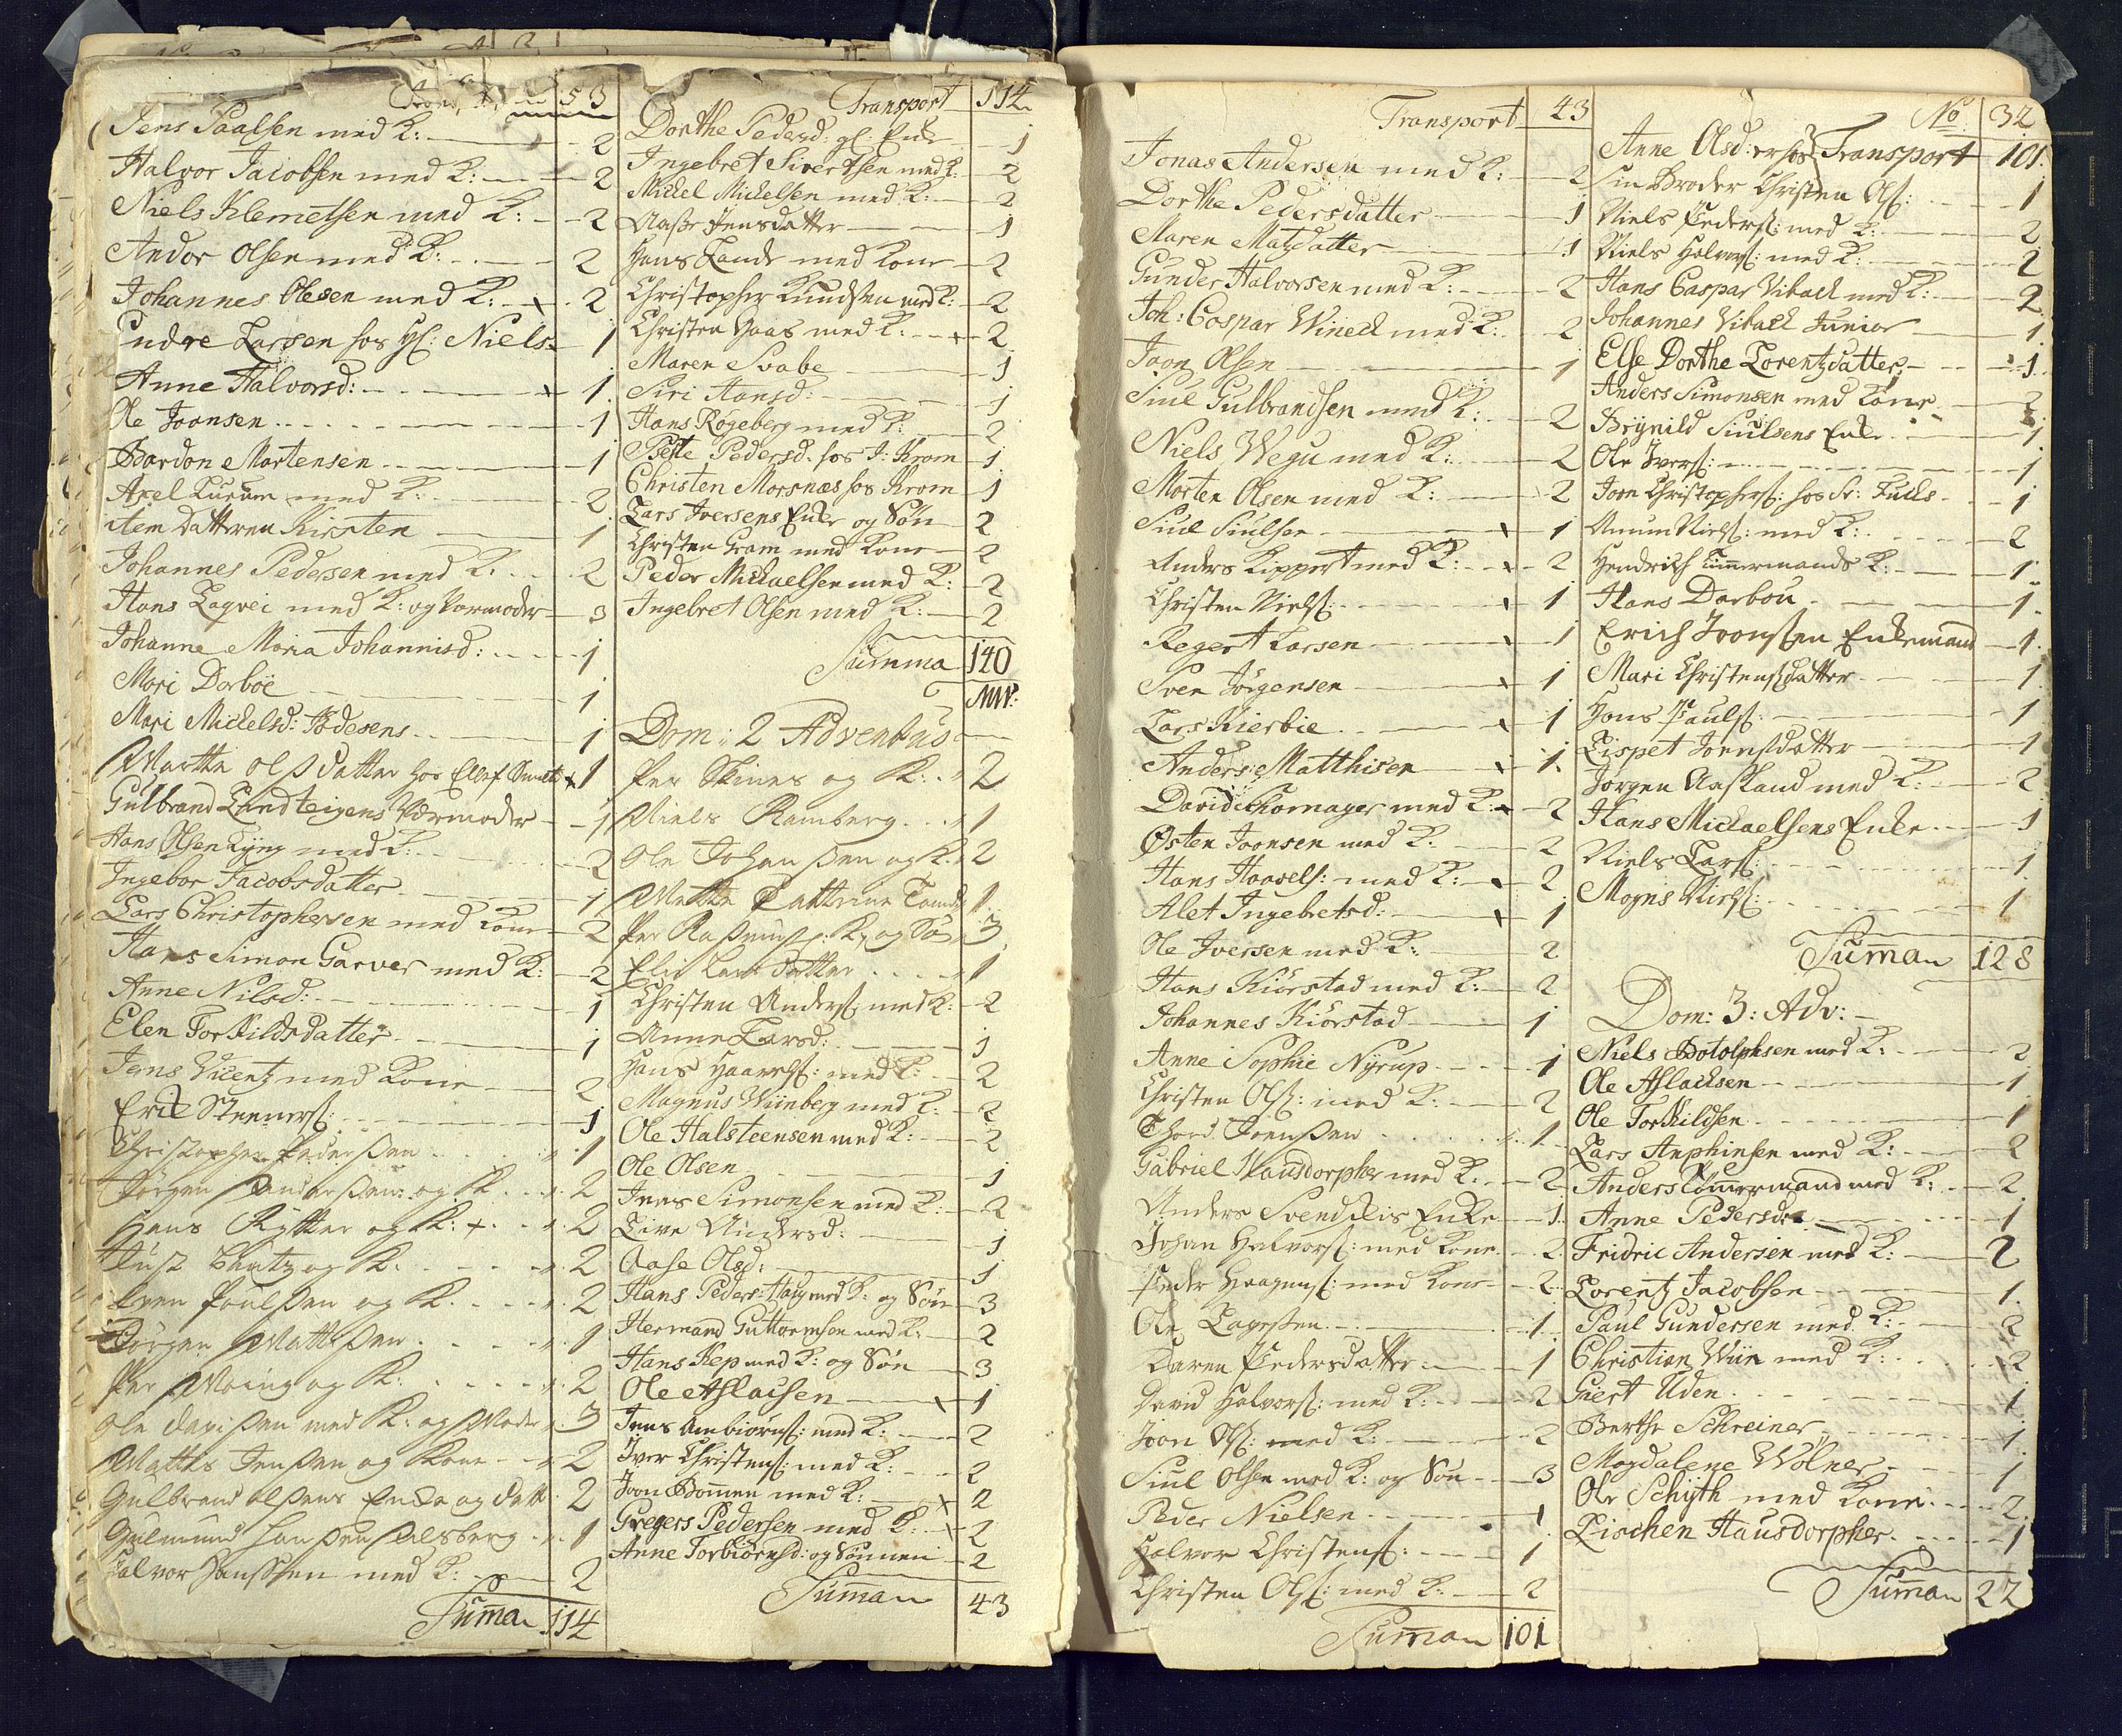 Transport 53
Jens Paalsen med K: 2
Halvor Jacobsen med K: 2
Niels Klemetsen med K: 2
Andor Olsen med K: 2
Johannes Olesen med K: 2
Endre Larsen hos Hl: Niels 1
Anne Halvorsd: 1
Ole Joansen 1
Bardon Mortensen 1
Axel Kurum med K: 2
item Datteren Kirsten 1
Johannes Pedersen med K: 2
Hans Lagrei med K: og Vermoder 3
Johanne Maria Johannisd: 1
Mari Darboe 1
Mari Mickelsd: 1
Marthe olsdatter hos Ellef 1
Gulbrand Lundteigens Værmoder 1
Hans Olsen Lyng med K: 2
Ingebor Jacobsdatter 1
Lars Christophersen med Kone 2
Hans Simon Garver med K: 2
Anne Nilsd: 1
Elen Torkildsdatter 1
Jens Vicentz med Kone 2
Erik Steners: 1
Christopher Pedersen 1
Jørgen Andersen og K 2
Hans Rytter og K: 2
Just og K: 2
Sven Poulsen og K. 2
Jørgen Matthsen 1
Per Moing og K: 2
Ole Davisen med K: og Moder 3
Matths Jensen og Kone 2
Gulbrand olsens Enke og datt 2
Gulmund Hansen 1
Halvor Hansen med K: 2
Suman 114
Transport 114
Dorthe Pedersd: gl: Enke 1
Ingebret Sivertsen med K: 2
Mickel Mickelsen med K: 2
Aase Jensdatter 1
Hans Lande med Kone 2
Christopher Knudsen med K: 2
Christen Haas med K: 2
Maren Svabe 1
Siri Hansd: 1
Hans Røgeberg med K: 2
Mette Pedersd. hos J: Krom 1
Christen Morsnæs hos Krom 1
Lars Iversens Enke og Søn 2
Christen Gram med Kone 2
Peder Mickaelsen med K: 2
Ingebret Olsen med K: 2
Summa 140
Dom: 2 Adventus
Per Skines og K: 2
Niels Ramberg 1
Ole Johansen og K. 2
Mette Cattrine 1
Per K, og Søn 3
Elie Larsdatter 1
Christen Anders: med K: 2
Anne Larsd: 1
Hans Haavels: med K: 2
Magnus Wiinberg med K: 2
Ole Halsteensen med K: 2
Ole Olsen 1
Jens Simonsen med K: 2
Live Andersd: 1
Aase Olsd: 1
Hans Peders: Haug med K: og Søn 3
Hermand Guttormsen med K: 2
Hans Kep med K: og Søn 3
Ole Aslacksen 1
Jens Ambiørns: med K: 2
Iver Christens: med K: 2
Joon Bommen med K: 2
Gregers Pedersen med K: 2
Anne Torbiørnsd: og Sønnen 2
Suman 43
Transport 43
Jonas Andersen med K: 2
Dorthe Pedersdatter 1
Maren Matzdatter 1
Gunder Halvorsen med K: 2
Joh: Caspar Wineck med K: 2
Joon Olsen 1
Siul Gulbrandsen med K: 2
Niels Wegu med K: 2
Morten Olsen med K: 2
Siul Siulsen 1
Anders Kippert med K: 2
Christen Niels: 1
Regert Larsen 1
Sven Jørgensen 1
Lars Kierbie 1
Anders Matthisen 1
David Thornager med K: 2
Østen Joonsen med K: 2
Hans Haavels: med K: 2
Alet Ingebretsd: 1
Ole Iversen med K: 2
Hans Kiørstad med K: 2
Johannes Kiørstad 1
Anne Sophie Nyrup 1
Christen Ols: med K: 2
Thord Joensen 1
Gabriel Hausdorpher med K: 2
Anders Enke 1
Johan Halvors: med Kone 2
Peder Haagens: med Kone 2
Ole Lagesen 1
Karen Pedersdatter 1
David Halvors: med K: 2
Joon Ols: med K: 2
Siul Olsen med K: og Søn 3
Peder Nielsen 1
Halvor Christens: 1
Christen Ols: med K: 2
Suman 101
No 32
Transport 101
Anne Olsd: er hos
sin Broder Christen Ols: 1
Niels Peders: med K: 2
Niels Halvors: med K: 2
Hans Caspar Viback med K: 2
Johannes Viback Junior 1
Else Dorthe Lorentzdatter 1
Anders Simonsen med Kone 2
Brynild Siulsens Enke 1
Ole Ivers: 1
Joon Christophers: hos Sr: Fucks 1
Amun Niels: med K: 2
Hendrich Timmermands K: 1
Hans Darbou 1
Erich Joonsen Enkemand 1
Mari Christensdatter 1
Hans Pauls: 1
Lispet Joensdatter 1
Jørgen Aasland med K: 2
Hans Mickaelsens Enke 1
Niels Lars: 1
Mogns Niels: 1
Suman 128
Dom: 3: Adv:
Niels Botolphsen med K: 2
Ole Aslacksen 1
Ole Torkildsen 1
Lars Anphinsen med K: 2
Anders Tømmermand med K: 2
Anne Pedersdr 1
Fridric Andersen med K: 2
Lorentz Jacobsen 1
Paul Gundersen med K: 2
Christian Wiin med K: 2
Giert Uden 1
Berthe Schreiner 1
Magdalene Wølner 1
Ole Schyth med Kone 2
Lischen Hausdorpher 1
Suman 22